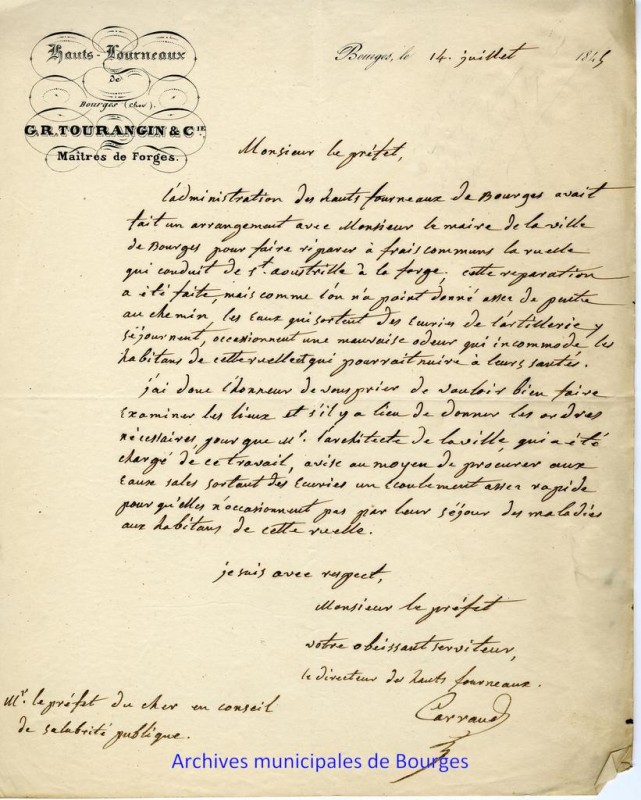 Hauts-Fourneaux
de
Bourges (Cher).
G.R. TOURANGIN & CIE
Maîtres de Forges.
Bourges, le 14. juillet 1845
Monsieur le préfet,
l'administration des hauts fourneaux de Bourges avait
fait un arrangement avec Monsieur le maire de la ville
de Bourges pour faire réparer à frais communs la ruelle
qui conduit de St. aoustrille à la forge. cette reparation
a été faite, mais comme l'on n'a point donné assez de pente
au chemin, les Eaux qui sortent des Ecuries de l'artillerie y
séjournent, occasionnent une mauvaise odeur qui incommode les
habitans de cette ruelle et qui pourrait nuire à leurs santés.
j'ai donc l'honneur de vous prier de vouloir bien faire
Examiner les lieux et s'il y a lieu de donner les ordres
nécessaires, pour que Mr. l'architecte de la ville, qui a été
chargé de ce travail, avise au moyen de procurer aux
Eaux sales sortant des Ecuries un Ecoulement assez rapide
pour qu'elles n'occasionnent pas par leur séjour des maladies
aux habitans de cette ruelle.
je suis avec respect,
Monsieur le préfet
votre obeissant serviteur,
le directeur des hauts fourneaux.
Carraud
Mr. le préfet du cher en conseil
de salubrité publique.
Archives municipales de Bourges